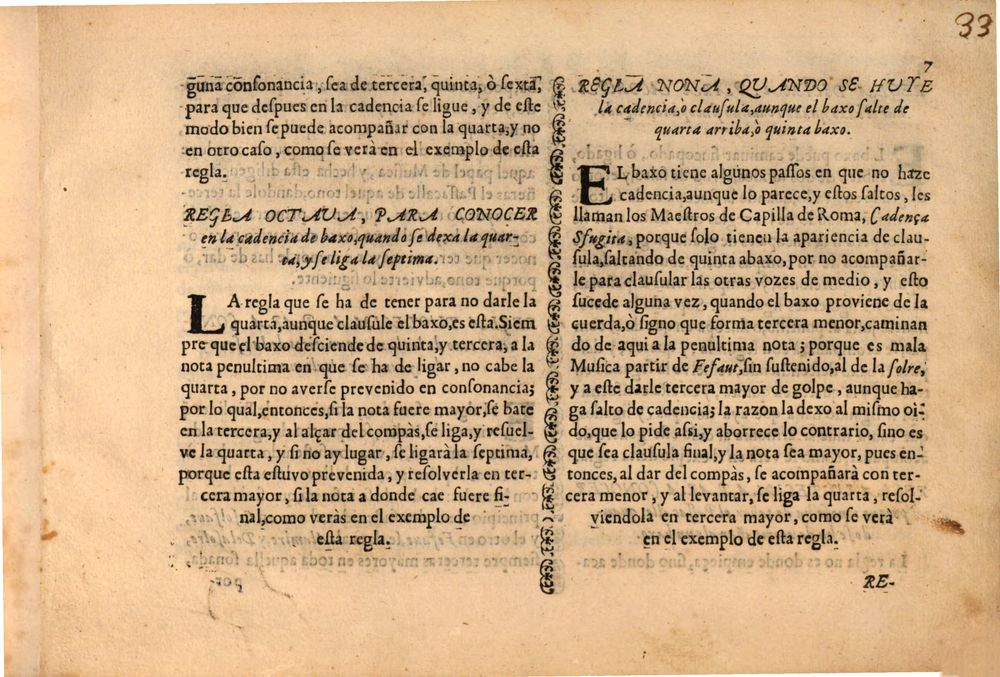 33
7
guna consonancia, sea de tercera, quinta, ò sexta,
para que despues en la cadencia se ligue, y de este
modo bien se puede acompañar con la quarta, y no
en otro caso, como se verà en el exemplo de esta
regla.
REGLA OCTAUA, PARA CONOCER
en la cadencia de baxo, quando se dexa la quar-
ta, y se liga la septima.
LA regla que se ha de tener para no darle la
quarta, aunque clausule el baxo, es esta. Siem
pre que el baxo desciende de quinta, y tercera, a la
nota penultima en que se ha de ligar, no cabe la
quarta, por no averse prevenido en consonancia;
por lo qual, entonces, si la nota fuere mayor, se bate
en la tercera, y al alçar del compàs, se liga, y resuel-
ve la quarta, y si no ay lugar, se ligarà la septima,
porque esta estuvo prevenida, y resolverla en ter-
cera mayor, si la nota a donde cae fuere fi-
nal, como veràs en el exemplo de
esta regla.
REGLA NONA, QUANDO SE HUYE
la cadencia, ò clausula, aunque el baxo salte de
quarta arriba, ò quinta baxo.
EL baxo tiene algunos passos en que no haze
cadencia, aunque lo parece, y estos saltos, les
llaman los Maestros de Capilla de Roma, Cadença
Sfugita, porque solo tienen la apariencia de clau-
sula, saltando de quinta abaxo, por no acompañar-
le para clausular las otras vozes de medio, y esto
sucede alguna vez, quando el baxo proviene de la
cuerda, ò signo que forma tercera menor, caminan
do de aqui a la penultima nota; porque es mala
Musica partir de Fefaut, sin sustenido, al de la solre,
y a este darle tercera mayor de golpe, aunque ha-
ga salto de cadencia; la razon la dexo al mismo oi-
do, que lo pide assi, y aborrece lo contrario, sino es
que sea clausula final, y la nota sea mayor, pues en-
tonces, al dar del compàs, se acompañarà con ter-
cera menor, y al levantar, se liga la quarta, resol-
viendola en tercera mayor, como se verà
en el exemplo de esta regla.
RE-